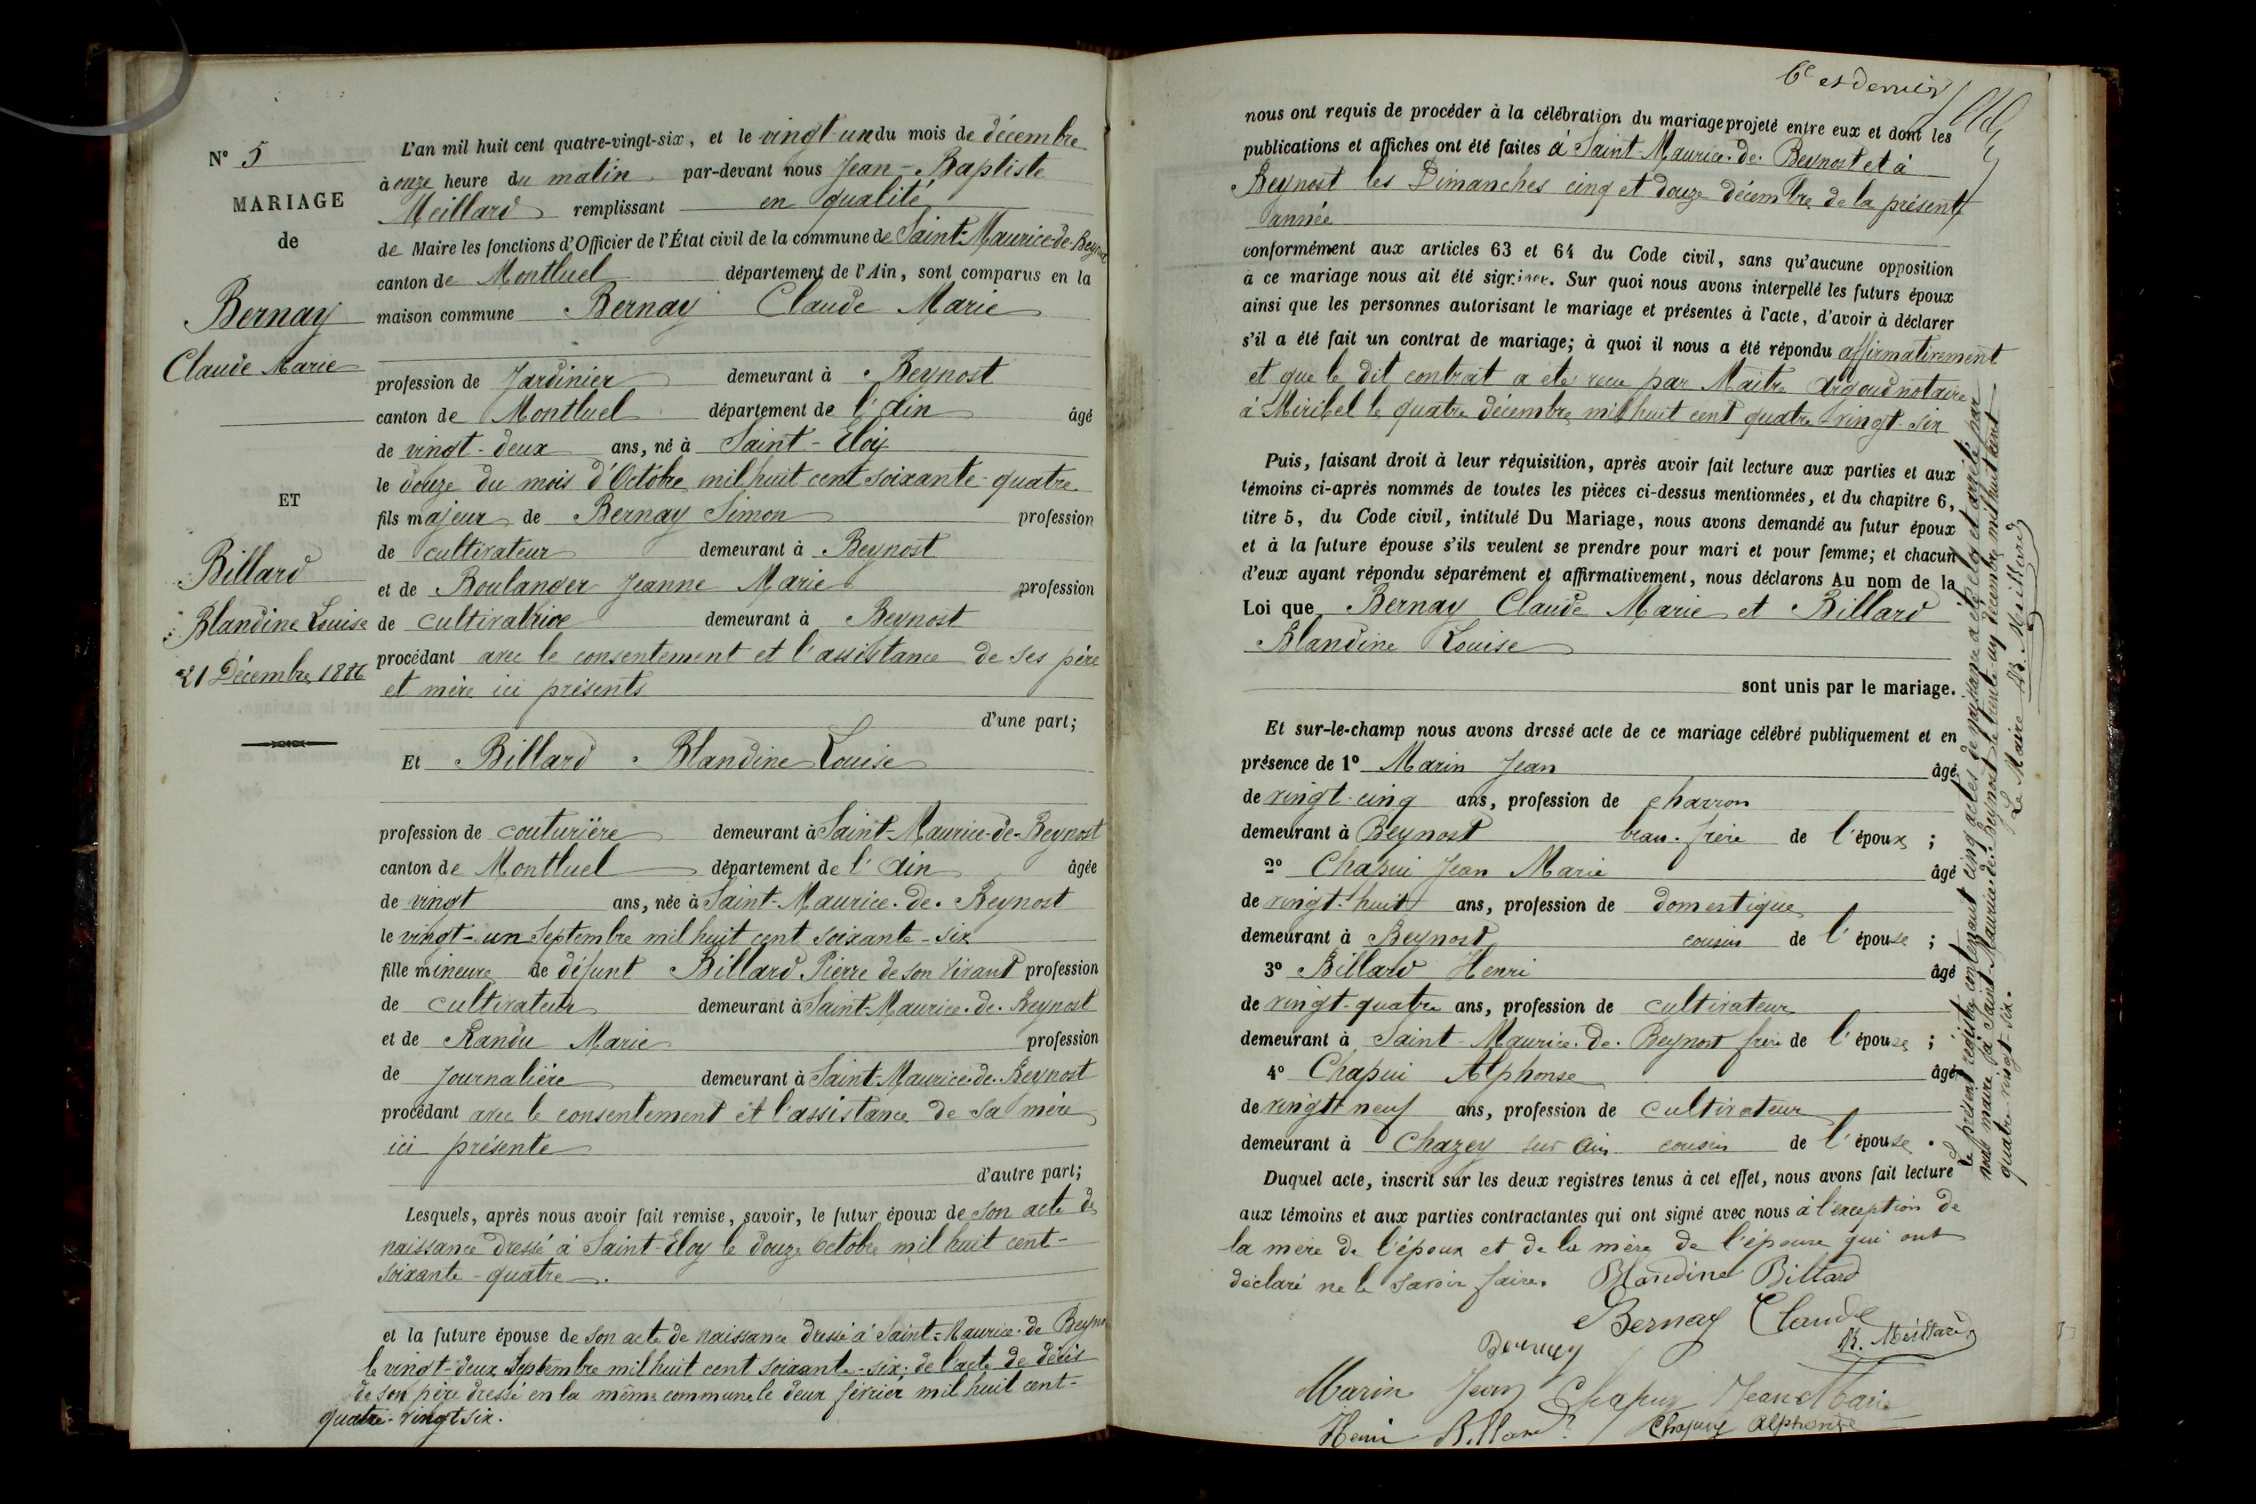 N° 5
MARIAGE
de
Bernay
Claude Marie
ET
Billard
Blandine Louise
21 Décembre 1886
L'an mil huit cent quatre-vingt-six, et le vingt-un du mois de décembre
à onze heure du matin par-devant nous Jean-Baptiste
Meillard remplissant en qualité
de Maire les fonctions d'Officier de l'État civil de la commune de Saint-Maurice-de-Beynost
canton de Montluel département de l'Ain, sont comparus en la
maison commune Bernay Claude Marie
profession de Jardinier demeurant à Beynost
canton de Montluel département de l'Ain âgé
de vingt-deux ans, né à Saint-Eloy
le douze du mois d'Octobre mil huit cent soixante-quatre
fils majeur de Bernay Simon profession
de cultivateur demeurant à Beynost
et de Boulanger Jeanne Marie profession
de cultivatrice demeurant à Beynost
procédant avec le consentement et l'assistance de ses père
et mère ici présents
d'une part;
Et Billard Blandine Louise
profession de couturière demeurant à Saint-Maurice-de-Beynost
canton de Montluel département de l'Ain âgée
de vingt ans, née à Saint-Maurice-de-Beynost
le vingt-un Septembre mil huit cent soixante-six
fille mineure de défunt Billard Pierre de son vivant profession
de cultivateur demeurant à Saint-Maurice-de-Beynost
et de Randu Marie profession
de Journalière demeurant à Saint-Maurice-de-Beynost
procédant avec le consentement et l'assistance de sa mère
ici présente
d'autre part;
Lesquels, après nous avoir fait remise, savoir, le futur époux de son acte de
naissance dressé à Saint-Eloy le douze Octobre mil huit cent-
soixante-quatre.
et la future épouse de son acte de naissance dressé à Saint-Maurice-de Beyno
le vingt-deux Septembre mil huit cent soixante-six; de l'acte de décès
de son père dressé en la même commune le deux février mil huit cent-
quatre-vingt six.
6e et dernier
nous ont requis de procéder à la célébration du mariage projeté entre eux et dont les
publications et affiches ont été faites à Saint-Maurice-de-Beynost et à
Beynost les Dimanches cinq et douze décembre de la présente
année
conformément aux articles 63 et 64 du Code civil, sans qu'aucune opposition
à ce mariage nous ait été signifiée. Sur quoi nous avons interpellé les futurs époux
ainsi que les personnes autorisant le mariage et présentes à l'acte, d'avoir à déclarer
s'il a été fait un contrat de mariage; à quoi il nous a été répondu affirmativement
et que le dit contrat a été recu par Maître Argoud notaire
à Miribel le quatre décembre mil huit cent quatre vingt-six
Puis, faisant droit à leur réquisition, après avoir fait lecture aux parties et aux
témoins ci-après nommés de toutes les pièces ci-dessus mentionnées, et du chapitre 6,
titre 5, du Code civil, intitulé Du Mariage, nous avons demandé au futur époux
et à la future épouse s'ils veulent se prendre pour mari et pour femme; et chacun
d'eux ayant répondu séparément et affirmativement, nous déclarons Au nom de la
Loi que Bernay Claude Marie et Billard
Blandine Louise
sont unis par le mariage.
Et sur-le-champ nous avons dressé acte de ce mariage célébré publiquement et en
présence de 1° Marin Jean âgé
de vingt-cinq ans, profession de charron
demeurant à Beynost beau-frère de l'époux;
2° Chapui Jean Marie âgé
de vingt-huit ans, profession de domestique
demeurant à Beynost cousin de l'épouse;
3° Billard Henri âgé
de vingt-quatre ans, profession de cultivateur
demeurant à Saint-Maurice-de-Beynost frère de l'épouse;
4° Chapui Alphonse âgé
de vingt neuf ans, profession de cultivateur
demeurant à Chazey sur Ain cousin de l'épouse.
Duquel acte, inscrit sur les deux registres tenus à cet effet, nous avons fait lecture
aux témoins et aux parties contractantes qui ont signé avec nous à l'exception de
la mère de l'époux et de la mère de l'épouse qui ont
déclaré ne le savoir faire. Blandine Billard
Bernay Claude
Bernay B. Meillard
Marin Jean Chapuy Jean Marie
Henri Billard Chapuy Alphonse
Le présent registre contenant cinq actes de mariage a été clos et arrêté par
nous maire à Saint-Maurice-de-Beynost le trente un décembre mil huit cent
quatre-vingt-six.
Le Maire B. Meillard